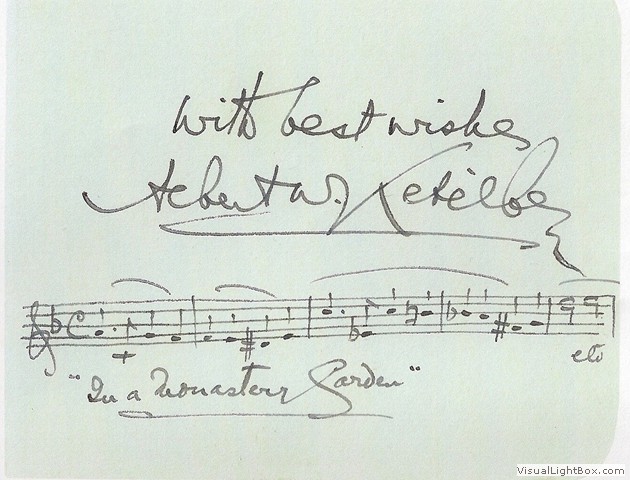 with best wishes
Albert W. Ketèlbey
etc
"In a Monastery Garden"
VisualLightBox.com